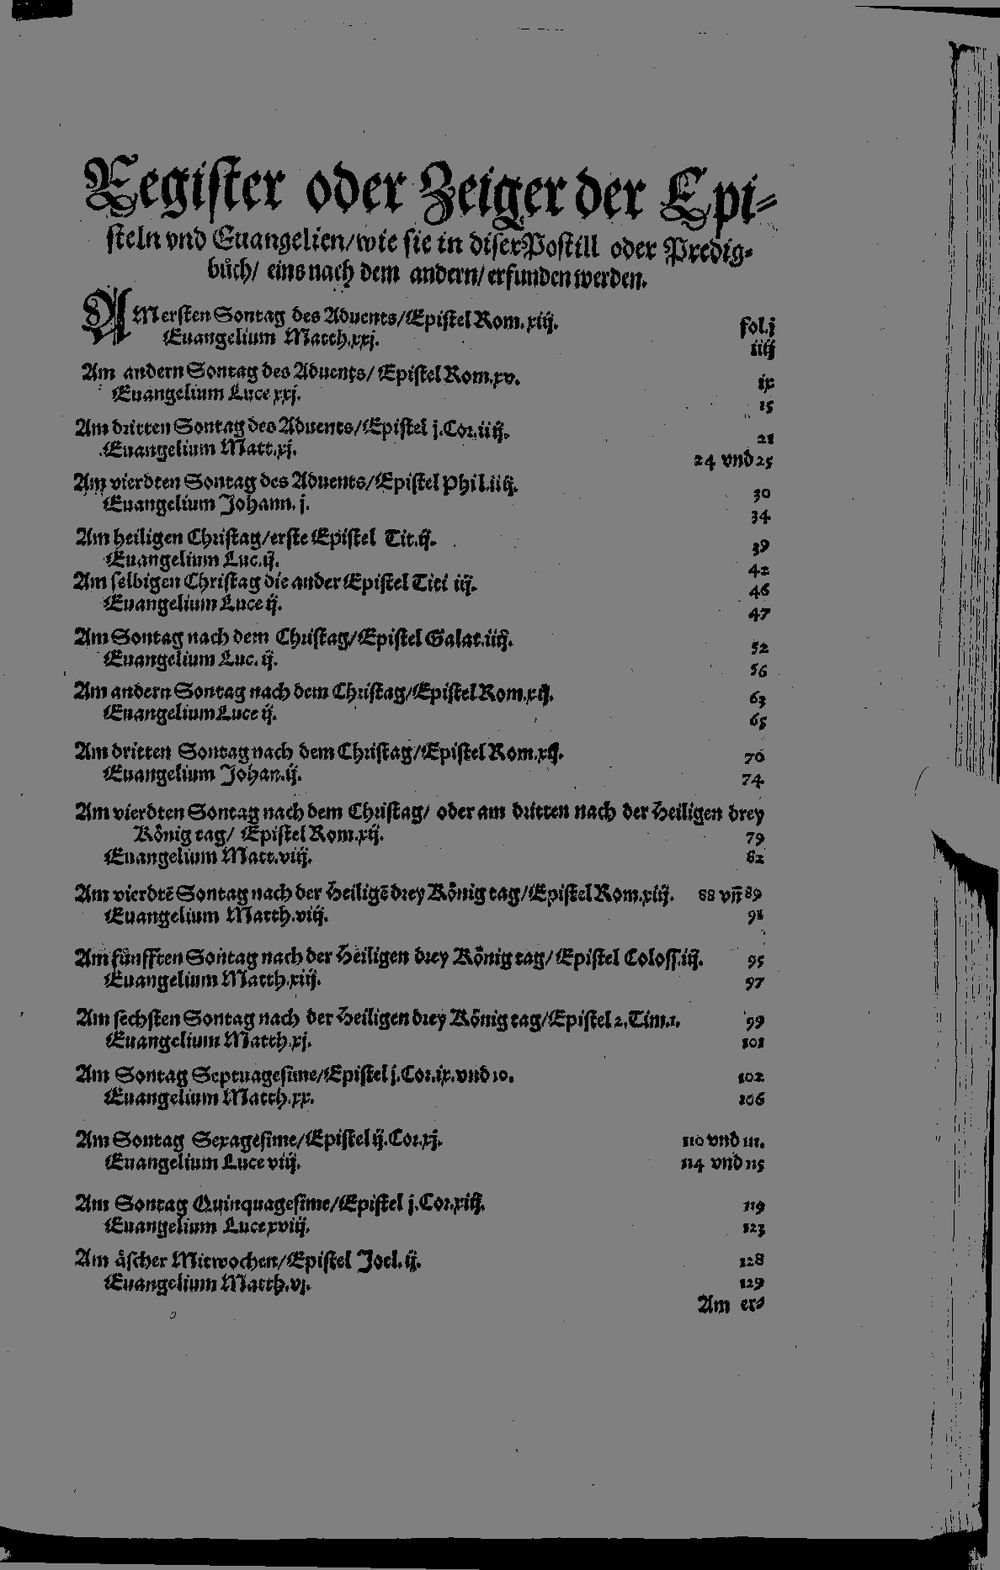 Register oder Zeiger der Epi-
steln vnd Euangelien/wie sie in diser Postill oder Predig-
bůch/ eins nach dem andern/ erfunden werden.
AM ersten Sontag des Aduents/Epistel Rom.xiij. fol.j
Euangelium Matth.xxj. iiij
Am andern Sontag des Aduents/ Epistel Rom.xv. ix
Euangelium Luce xxj. 15
Am dritten Sontag des Aduents/Epistel j.Cor.iiij. 21
Euangelium Matt.xj. 24 vnd 25
Am vierdten Sontag des Aduents/Epistel Phil.iiij. 30
Euangelium Johann. j. 34
Am heiligen Christag/erste Epistel Tit.ij. 39
Euangelium Luc.ij. 42
Am selbigen Christag die ander Epistel Titi iij. 46
Euangelium Luce ij. 47
Am Sontag nach dem Christag/Epistel Galat.iiij. 52
Euangelium Luc. ij. 56
Am andern Sontag nach dem Christag/Epistel Rom.xij. 63
Euangelium Luce ij. 65
Am dritten Sontag nach dem Christag/Epistel Rom.xij. 70
Euangelium Johan.ij. 74
Am vierdten Sontag nach dem Christag/ oder am dritten nach der Heiligen drey
König tag/ Epistel Rom.xij. 79
Euangelium Matt.viij. 82
Am vierdtē Sontag nach der Heiligē drey König tag/Epistel Rom.xiij. 88 vn̄ 89
Euangelium Matth.viij. 91
Am fünfften Sontag nach der Heiligen drey König tag/Epistel Coloss.iij. 95
Euangelium Matth.xiij. 97
Am sechsten Sontag nach der Heiligen drey König tag/Epistel 2.Tim.1. 99
Euangelium Matth.xj. 101
Am Sontag Septuagesime/Epistel j.Cor.ix.vnd 10. 102
Euangelium Matth.xx. 106
Am Sontag Sexagesime/Epistel ij.Cor.xj. 110 vnd 111.
Euangelium Luce viij. 114 vnd 115
Am Sontag Quinquagesime/Epistel j.Cor.xiij. 119
Euangelium Luce xviij. 123
Am åscher Mitwochen/Epistel Joel.ij. 128
Euangelium Matth.vj. 129
Am er-